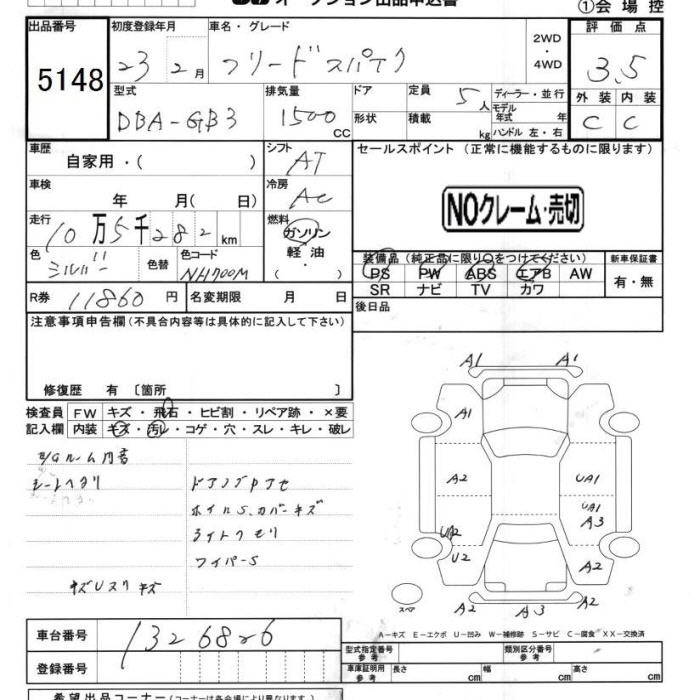 オークション出品申込書
①会場控
出品番号 初度登録年月 車名・グレード 2WD・4WD 評価点
5148 23 2月 フリードスパイク 3.5
型式 排気量 ドア 定員 5人 ディーラー・並行 外装 内装
DBA-GB3 1500 CC 形状 積載 kg モデル年式 年 ハンドル 左・右 C C
車歴 自家用・( ) シフト AT セールスポイント(正常に機能するものに限ります)
車検 年 月( 日) 冷房 AC
NOクレーム・売切
走行 10万5千282km 燃料 ガソリン・軽油・
色 シルバー 色替 色コード NH700M
装備品(純正品に限り○をつけてください) 新車保証書
PS PW ABS エアB AW 有・無
SR ナビ TV カワ
R券 11860円 名変期限 月 日
後日品
注意事項申告欄(不具合内容等は具体的に記入して下さい)
修復歴 有 〔箇所 〕
検査員 FW キズ・飛石・ヒビ割・リペア跡・×要
記入欄 内装 キズ・汚レ・コゲ・穴・スレ・キレ・破レ
シートヘタリ
ホイルS.カバーキズ
ライトクモリ
ワイパーS
A1 A1
A1
A2 UA1
UA1
A3
UA2
U2 A2
スペア
A2 A3 A2
A-キズ E-エクボ U-凹み W-補修跡 S-サビ C-腐食 XX-交換済
車台番号 1326826
型式指定番号 参考 類別区分番号 参考
登録番号
車庫証明用 参考 長さ cm 幅 cm 高さ cm
希望出品コーナー(コーナーは各会場により異なります)